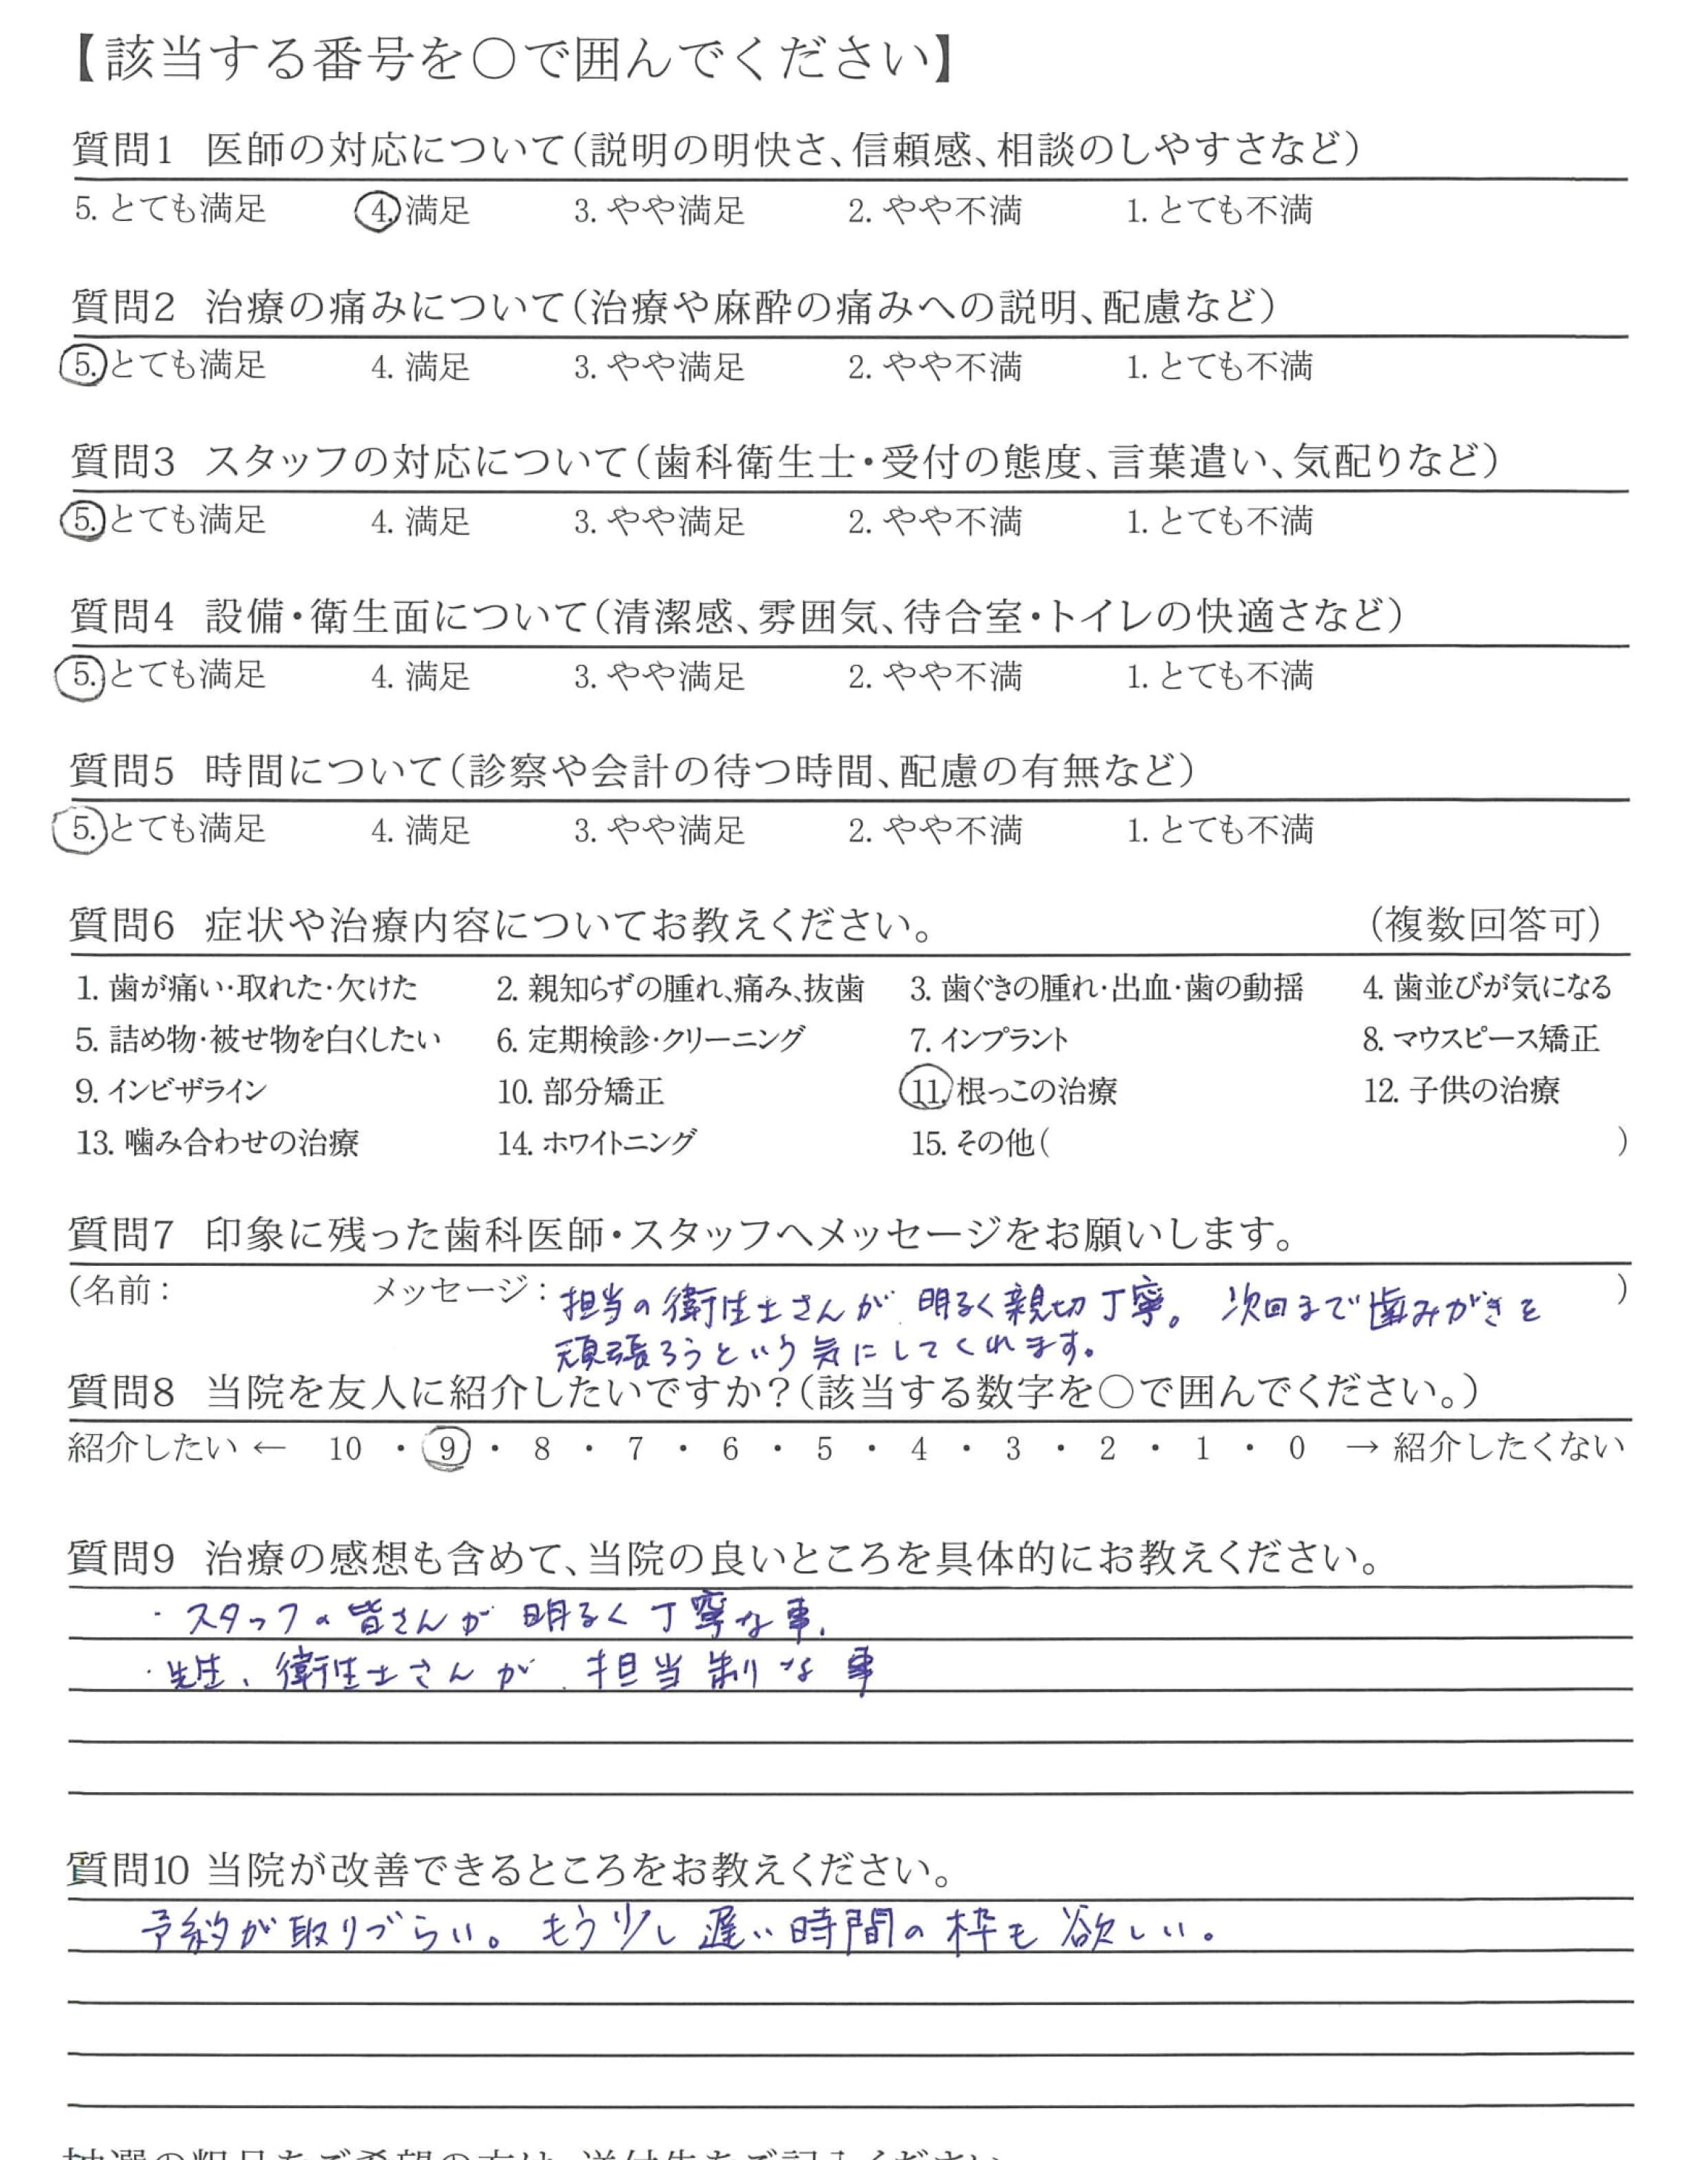 【該当する番号を○で囲んでください】
質問1 医師の対応について(説明の明快さ、信頼感、相談のしやすさなど)
5. とても満足 4. 満足 3. やや満足 2. やや不満 1. とても不満
質問2 治療の痛みについて(治療や麻酔の痛みへの説明、配慮など)
5. とても満足 4. 満足 3. やや満足 2. やや不満 1. とても不満
質問3 スタッフの対応について(歯科衛生士・受付の態度、言葉遣い、気配りなど)
5. とても満足 4. 満足 3. やや満足 2. やや不満 1. とても不満
質問4 設備・衛生面について(清潔感、雰囲気、待合室・トイレの快適さなど)
5. とても満足 4. 満足 3. やや満足 2. やや不満 1. とても不満
質問5 時間について(診察や会計の待つ時間、配慮の有無など)
5. とても満足 4. 満足 3. やや満足 2. やや不満 1. とても不満
質問6 症状や治療内容についてお教えください。 (複数回答可)
1. 歯が痛い・取れた・欠けた 2. 親知らずの腫れ、痛み、抜歯 3. 歯ぐきの腫れ・出血・歯の動揺 4. 歯並びが気になる
5. 詰め物・被せ物を白くしたい 6. 定期検診・クリーニング 7. インプラント 8. マウスピース矯正
9. インビザライン 10. 部分矯正 11. 根っこの治療 12. 子供の治療
13. 噛み合わせの治療 14. ホワイトニング 15. その他( )
質問7 印象に残った歯科医師・スタッフへメッセージをお願いします。
(名前: メッセージ: 担当の衛生士さんが明るく親切丁寧。次回まで歯みがきを )
頑張ろうという気にしてくれます。
質問8 当院を友人に紹介したいですか?(該当する数字を○で囲んでください。)
紹介したい ← 10 ・ 9 ・ 8 ・ 7 ・ 6 ・ 5 ・ 4 ・ 3 ・ 2 ・ 1 ・ 0 → 紹介したくない
質問9 治療の感想も含めて、当院の良いところを具体的にお教えください。
・スタッフの皆さんが明るく丁寧な事.
・先生、衛生士さんが担当制な事
質問10 当院が改善できるところをお教えください。
予約が取りづらい。もう少し遅い時間の枠も欲しい。
抽選の粗品をご希望の方は、送付先をご記入ください